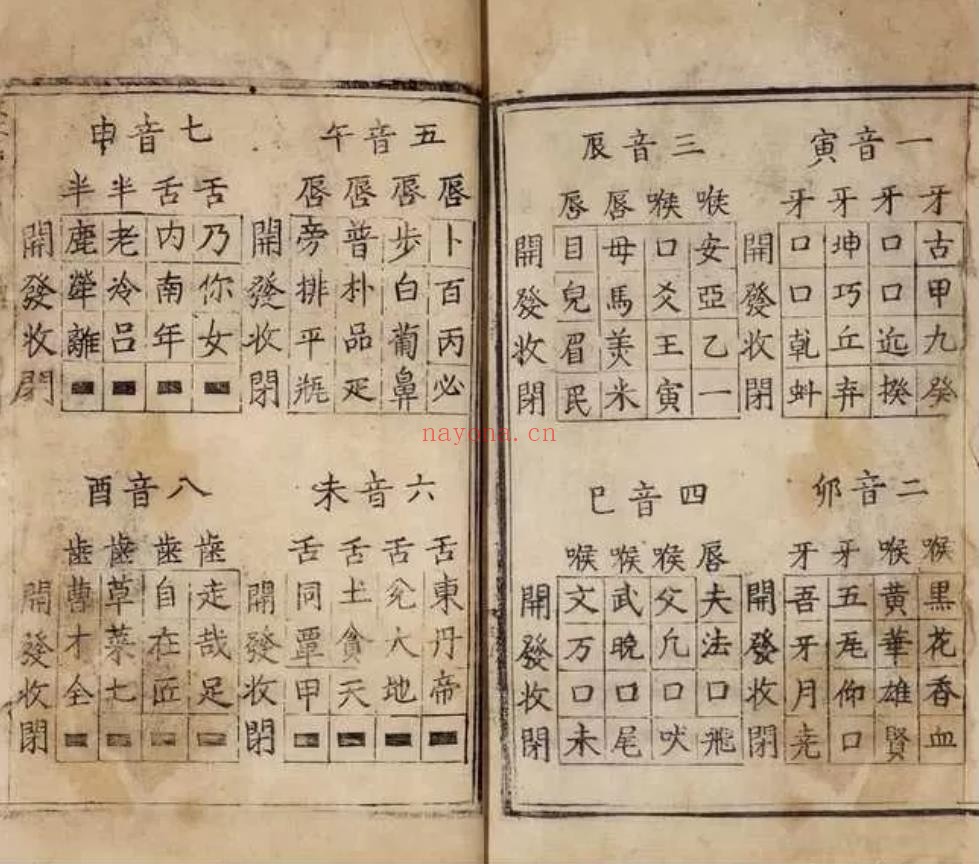 一音寅
牙牙牙牙
古口坤口開
甲口巧口發
九近丘乾收
癸揆弃虯閉
二音卯
喉喉牙牙
黑黃五吾開
花華瓦牙發
香雄仰月收
血賢口堯閉
三音辰
喉喉唇唇
安口母目開
亞爻馬皃發
乙王美眉收
一寅米民閉
四音巳
唇喉喉喉
夫父武文開
法凡晚万發
口口口口收
飛吠尾未閉
五音午
唇唇唇唇
卜步普旁開
百白朴排發
丙葡品平收
必鼻疋瓶閉
六音未
舌舌舌舌
東兌土同開
丹大貪覃發
帝地天甲收
▬▬▬▬閉
七音申
舌舌半半
乃內老鹿開
你南冷犖發
女年呂離收
▬▬▬▬閉
八音酉
齒齒齒齒
走自草曹開
哉在菜才發
足匠七全收
▬▬▬▬閉
nayona.cn